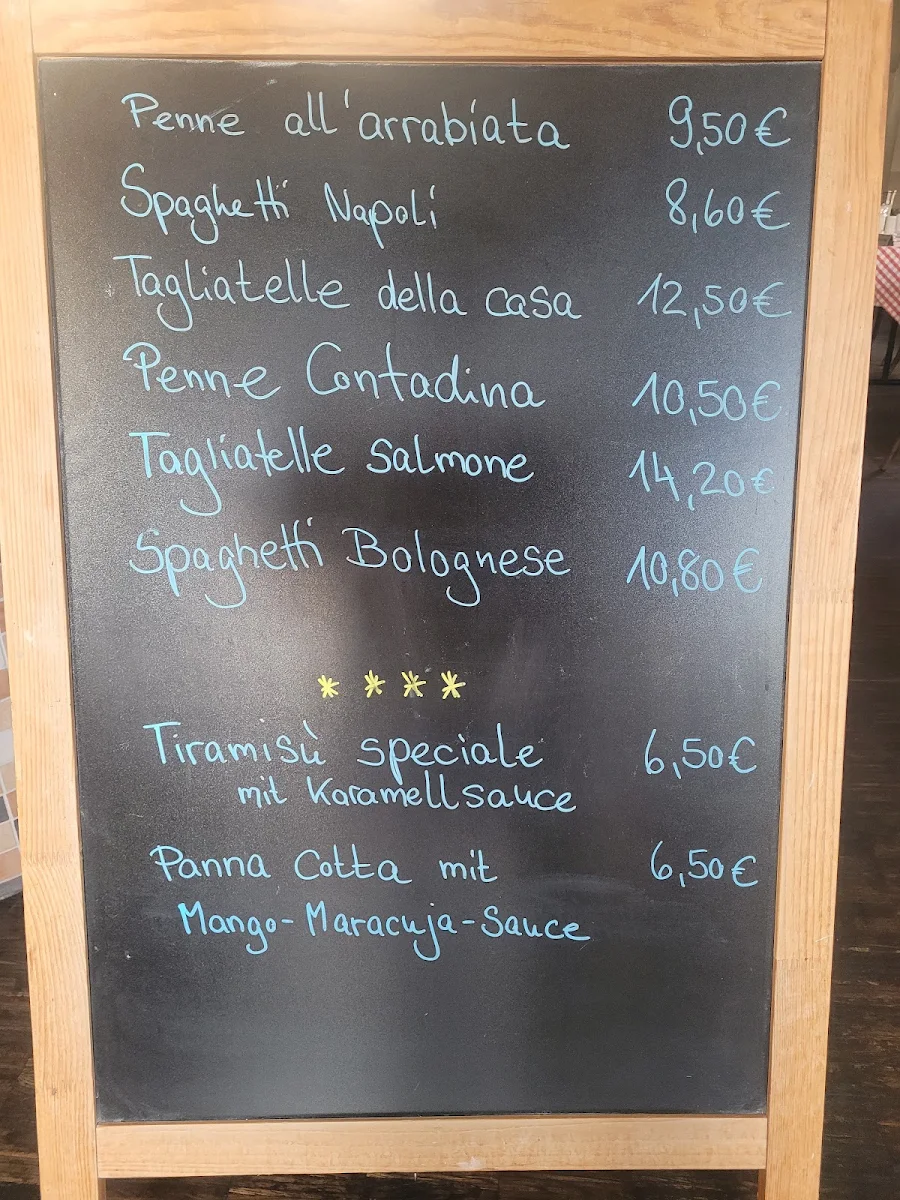 Penne all'arrabiata 9,50€
Spaghetti Napoli 8,60€
Tagliatelle della casa 12,50€
Penne Contadina 10,50€
Tagliatelle Salmone 14,20€
Spaghetti Bolognese 10,80€
****
Tiramisù speciale 6,50€
mit Karamellsauce
Panna Cotta mit 6,50€
Mango-Maracuja-Sauce